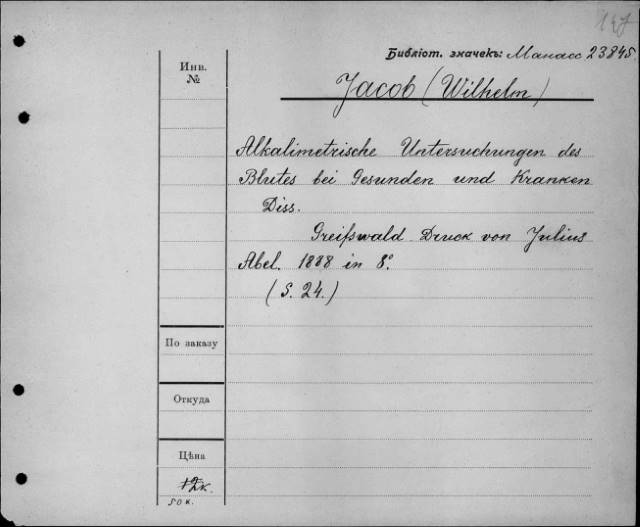 147
Библіот. значекъ: Манасс 23845.
Инв.
№
Jacob (Wilhelm)
Alkalimetrische Untersuchungen des
Blutes bei Gesunden und Kranken
Diss.
Greifswald Druck von Julius
Abel. 1888 in 8º.
(S. 24.)
По заказу
Откуда
Цѣна
12к.
50 к.